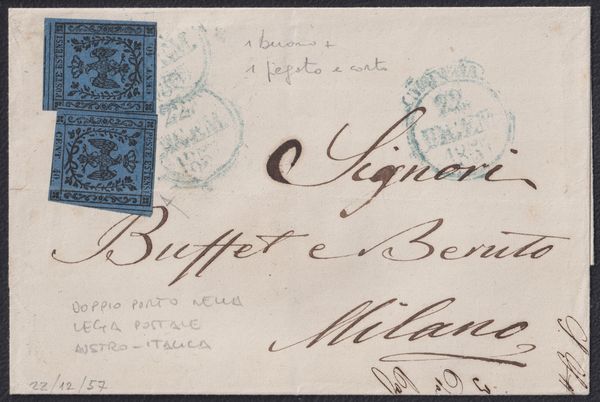 1 buono +
1 piegato e corto
POSTE ESTENSI
CENT. 40
POSTE ESTENSI
CENT. 40
22
22
Signori
Buffet e Beruto
Milano
DOPPIO PORTO NELLA
LEGA POSTALE
AUSTRO-ITALICA
22/12/57